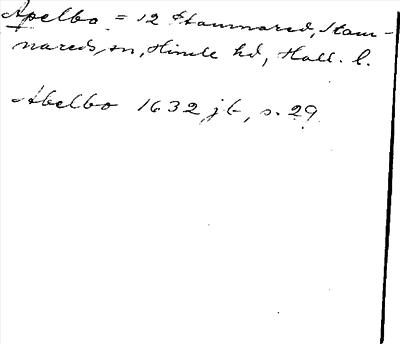 Apelbo = 12 Stamnared, Stam-
nareds sn, Himle hd, Hall. l.
Abelbo 1632, jb, s. 29